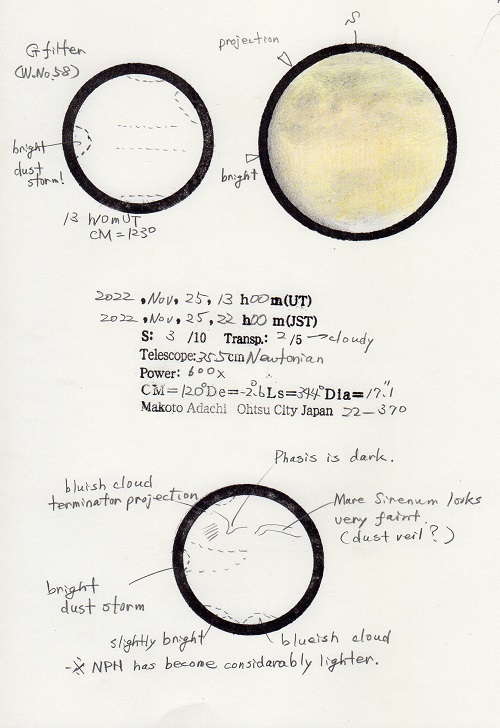 S
G filter
(W.No.58)
projection
bright
dust
storm!
bright
13 h00m UT
CM=123°
2022, Nov, 25, 13 h00 m(UT)
2022, Nov, 25, 22 h00 m(JST)
S: 3 /10 Transp.: 2/5 → cloudy
Telescope: 355cm Newtonian
Power: 600x
CM=120° De=-2.6° Ls=344° Dia=17".1
Makoto Adachi Ohtsu City Japan 22-370
Phasis is dark.
bluish cloud
terminator projection
Mare Sirenum looks
very faint.
(dust veil?)
bright
dust storm
slightly bright
blueish cloud
-※ NPH has become considarably lighter.